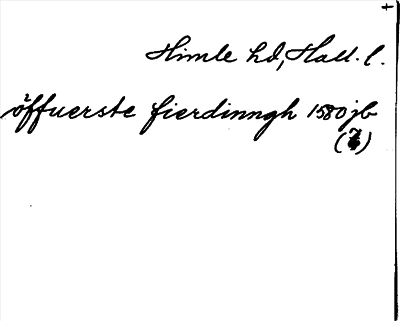 +
Himle hd, Hall. l.
öffuerste fierdinngh 1580 jb
(7)